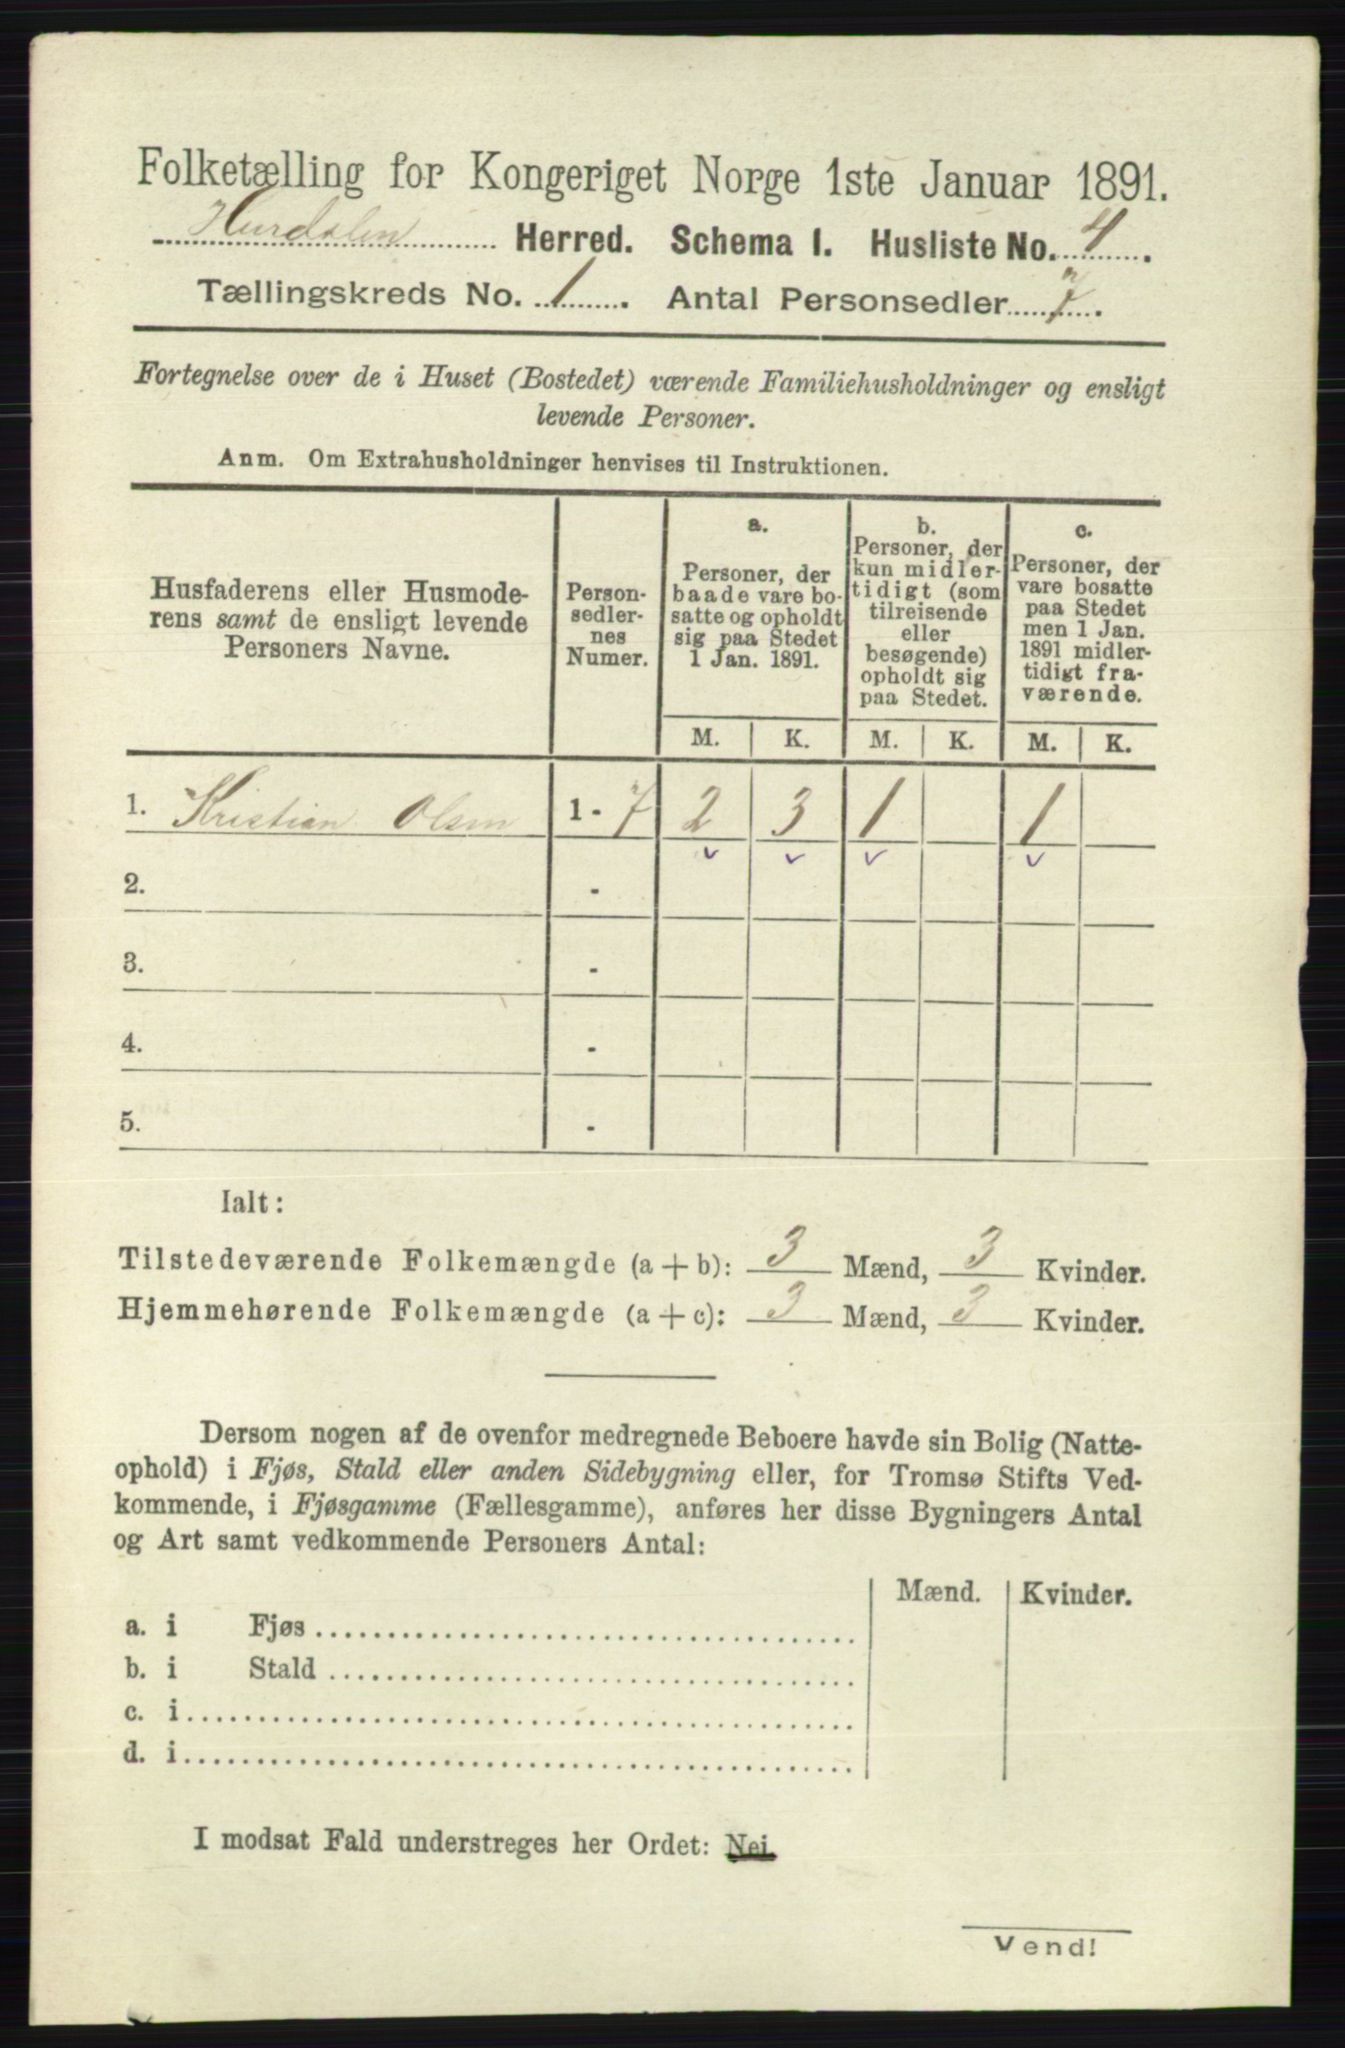 Folketælling for Kongeriget Norge 1ste Januar 1891.
Hurdalen Herred. Schema I. Husliste No. 4.
Tællingskreds No. 1. Antal Personsedler 7.
Fortegnelse over de i Huset (Bostedet) værende Familiehusholdninger og ensligt
levende Personer.
Anm. Om Extrahusholdninger henvises til Instruktionen.
Husfaderens eller Husmode-
rens samt de ensligt levende
Personers Navne.
Person-
sedler-
nes
Numer.
a.
Personer, der
baade vare bo-
satte og opholdt
sig paa Stedet
1 Jan. 1891.
b.
Personer, der
kun midler-
tidigt (som
tilreisende
eller
besøgende)
opholdt sig
paa Stedet.
c.
Personer, der
vare bosatte
paa Stedet
men 1 Jan.
1891 midler-
tidigt fra-
værende.
M. K. M. K. M. K.
1. Kristian Olsen 1 - 7 2 3 1 1
2. -
3. -
4. -
5. -
Ialt:
Tilstedeværende Folkemængde (a + b): 3 Mænd, 3 Kvinder.
Hjemmehørende Folkemængde (a + c): 3 Mænd, 3 Kvinder.
Dersom nogen af de ovenfor medregnede Beboere havde sin Bolig (Natte-
ophold) i Fjøs, Stald eller anden Sidebygning eller, for Tromsø Stifts Ved-
kommende, i Fjøsgamme (Fællesgamme), anføres her disse Bygningers Antal
og Art samt vedkommende Personers Antal:
Mænd. Kvinder.
a. i Fjøs
b. i Stald
c. i
d. i
I modsat Fald understreges her Ordet: Nei.
Vend!